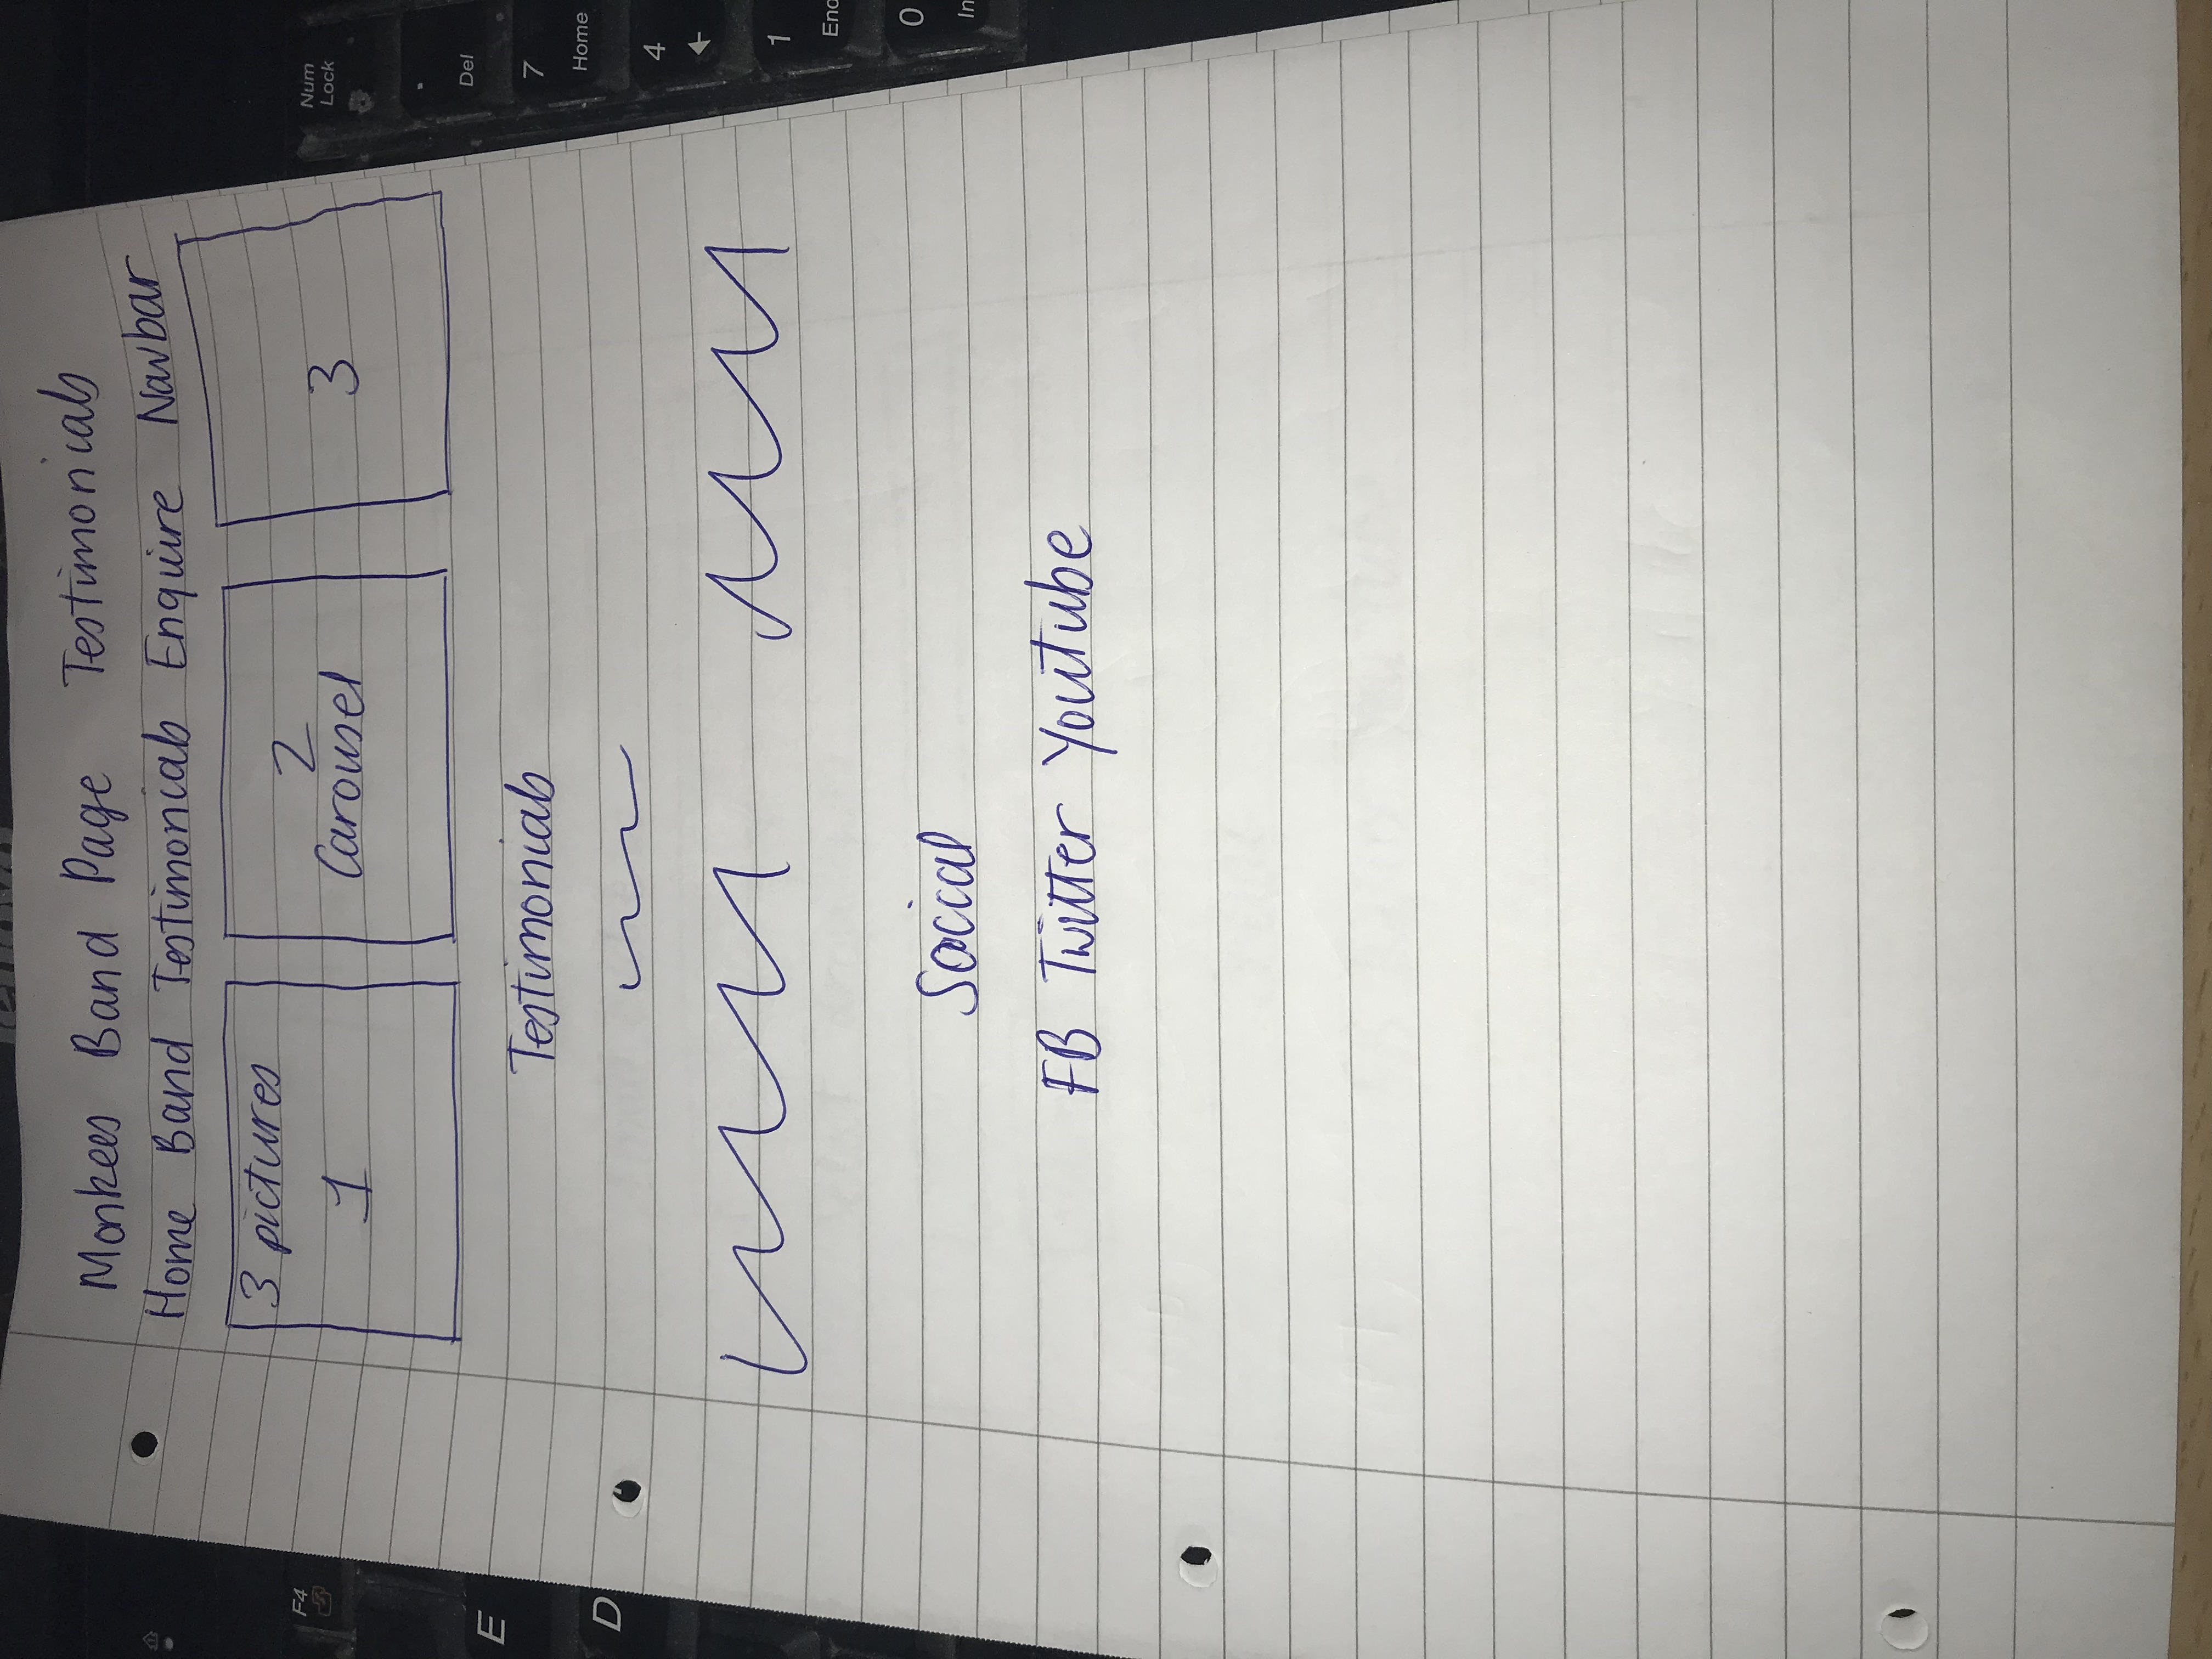 lenovo
Monkees Band Page Testimonials
Home Band Testimonials Enquire Navbar
3 pictures
1
2
Carousel
3
Testimonials
Social
FB Twitter Youtube
F4
E
D
Num
Lock
.
Del
7
Home
4
1
End
0
In